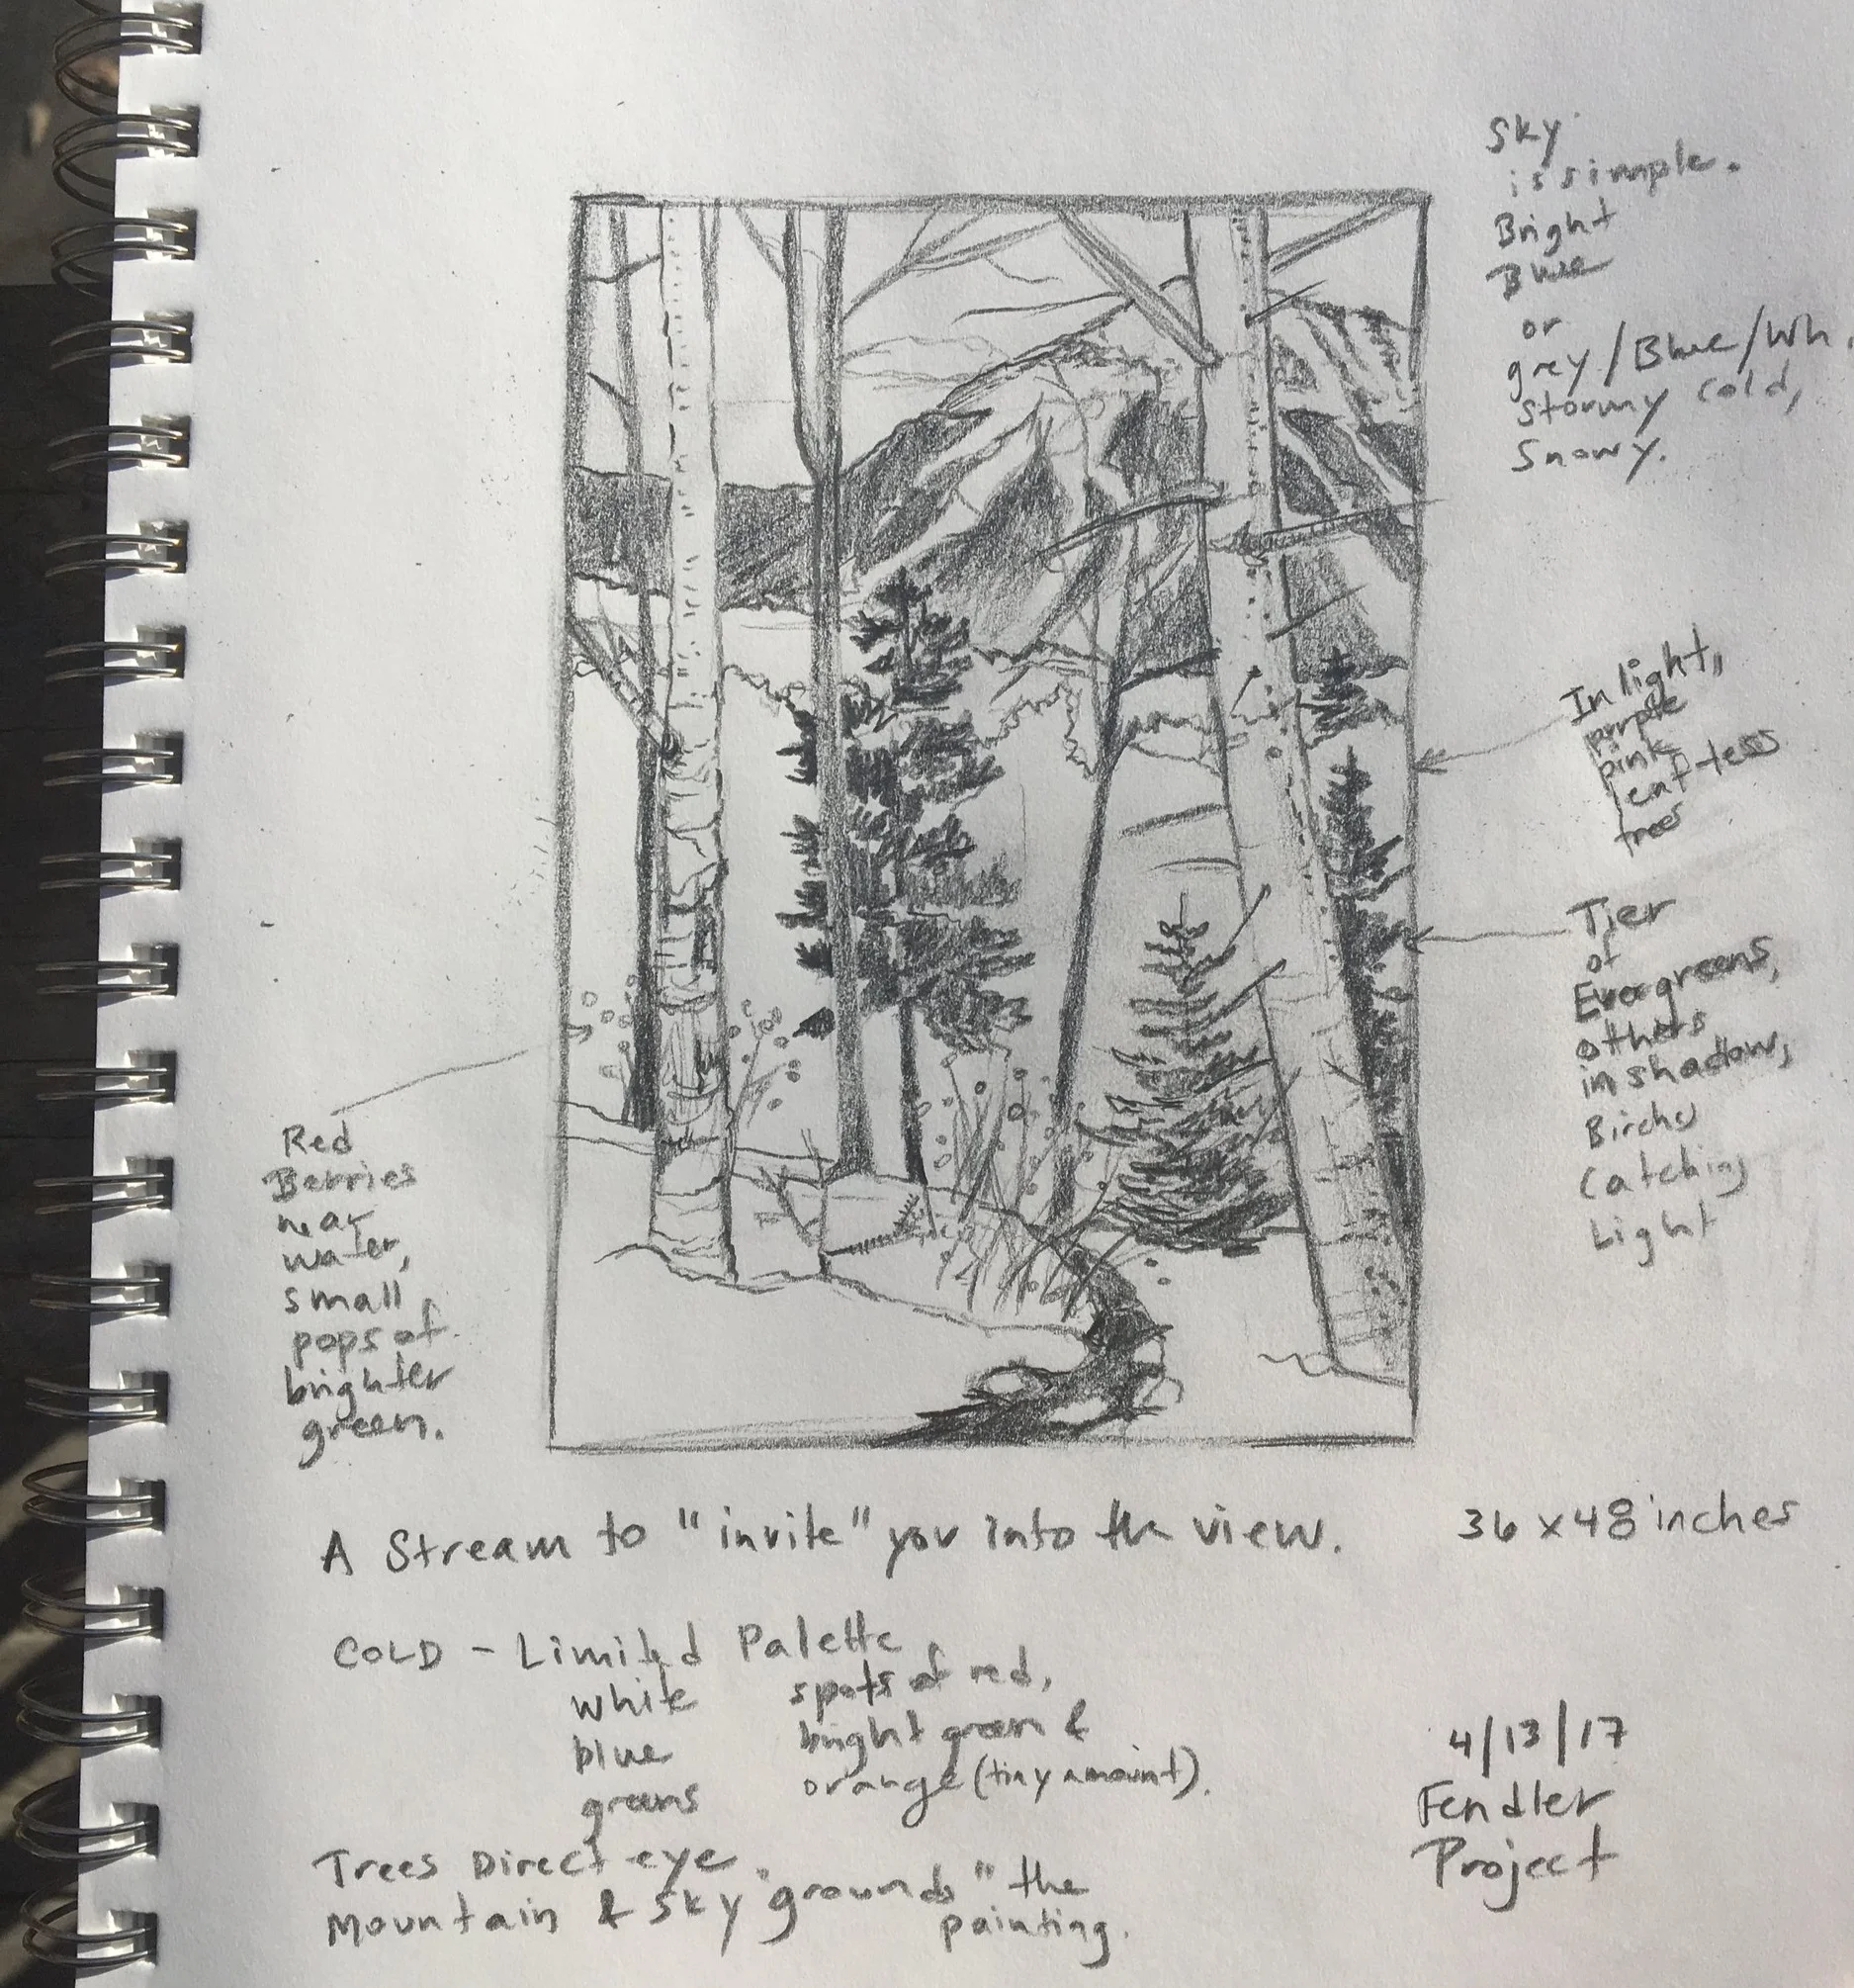 Sky
is simple.
Bright
Blue
or
grey/Blue/Wh.
stormy cold,
Snowy.
In light,
purple
pink
leaf-less
trees
Tier
of
Evergreens,
others
in shadow,
Birches
Catching
Light
Red
Berries
near
water,
small
pops of
brighter
green.
A Stream to "invite" you into the view.
36 x 48 inches
COLD - Limited Palette
white
blue
greens
spots of red,
bright green &
orange (tiny amount).
Trees Direct eye.
Mountain & Sky "grounds" the
painting.
4/13/17
Fendler
Project